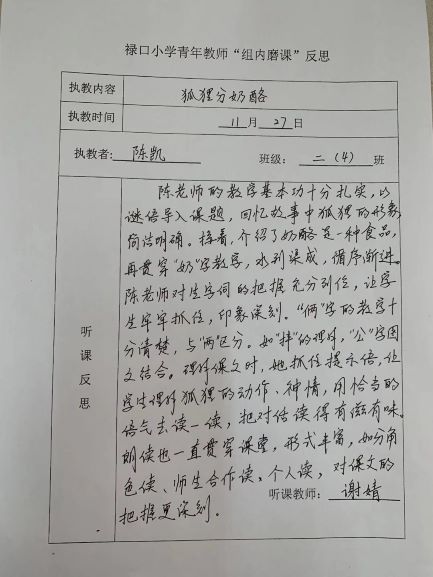 禄口小学青年教师“组内磨课”反思
执教内容 狐狸分奶酪
执教时间 11月27日
执教者: 陈凯 班级: 二(4)班
听课反思
陈老师的教学基本功十分扎实,以
谜语导入课题,回忆故事中狐狸的形象,
简洁明确。接着,介绍了奶酪是一种食品,
再贯穿“奶”字教学,水到渠成,循序渐进。
陈老师对生字词的把握充分到位,让学
生牢牢抓住,印象深刻。“俩”字的教学十
分清楚,与“两”区分。如“拌”的理解,“公”字图
文结合。理解课文时,她抓住提示语,让
学生理解狐狸的动作、神情,用恰当的
语气去读一读,把对话读得有滋有味。
朗读也一直贯穿课堂,形式丰富,如分角
色读、师生合作读、个人读,对课文的
把握更深刻。
听课教师: 谢婧